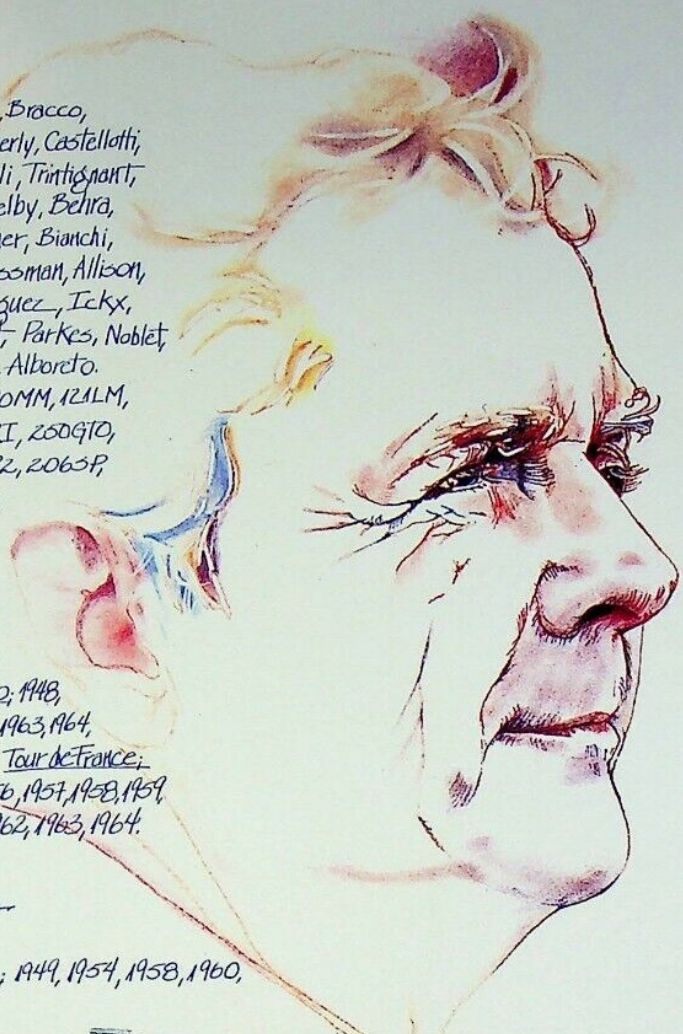 Bracco,
erly, Castellotti,
li, Trintignant,
elby, Behra,
er, Bianchi,
ssman, Allison,
guez, Ickx,
Parkes, Noblet,
Alboreto.
0MM, 121LM,
I, 250GTO,
2, 206SP,
; 1948,
1963, 1964,
Tour de France;
6, 1957, 1958, 1959,
62, 1963, 1964.
; 1949, 1954, 1958, 1960,